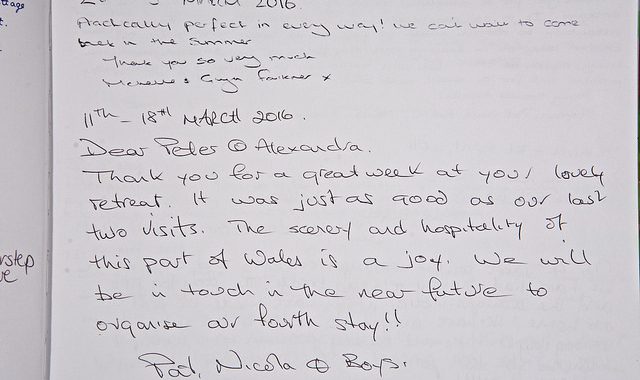 ttage
t.
rstep
ve
MARCH 2016.
Practically perfect in every way! We can't wait to come
back in the Summer
Thank you so very much
& Gwyn Faulkner x
11TH - 18TH MARCH 2016.
Dear Peter & Alexandra.
Thank you for a great week at your lovely
retreat. It was just as good as our last
two visits. The scenery and hospitality of
this part of Wales is a joy. We will
be in touch in the near future to
organise our fourth stay!!
Pat, Nicola & Boys.